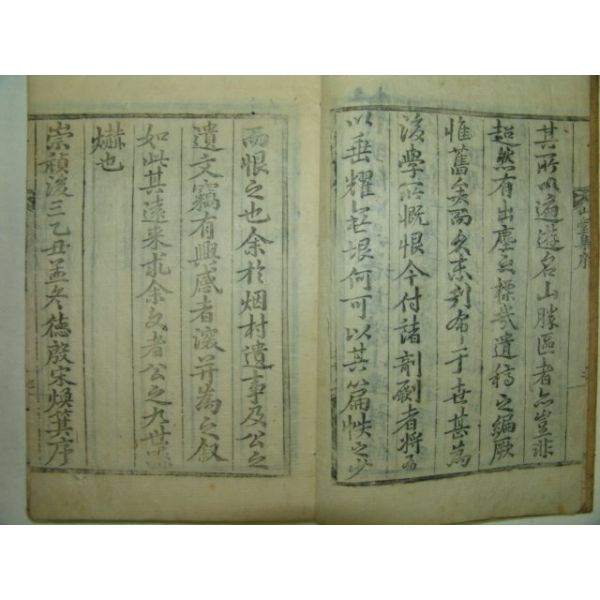 其所以遍遊名山勝區者亦豈非
超然有出塵之標哉遺稿之編厥
惟舊矣而久未刊布于世甚為
後學所慨恨今付諸剞劂者將
以垂耀無垠何可以其篇帙之少
而恨之也余於烟村遺事及公之
遺文竊有興感者遂并為之叙
如此其遠來求余文者公之九世孫
爀也
崇禎後三乙丑孟冬德殷宋煥箕序